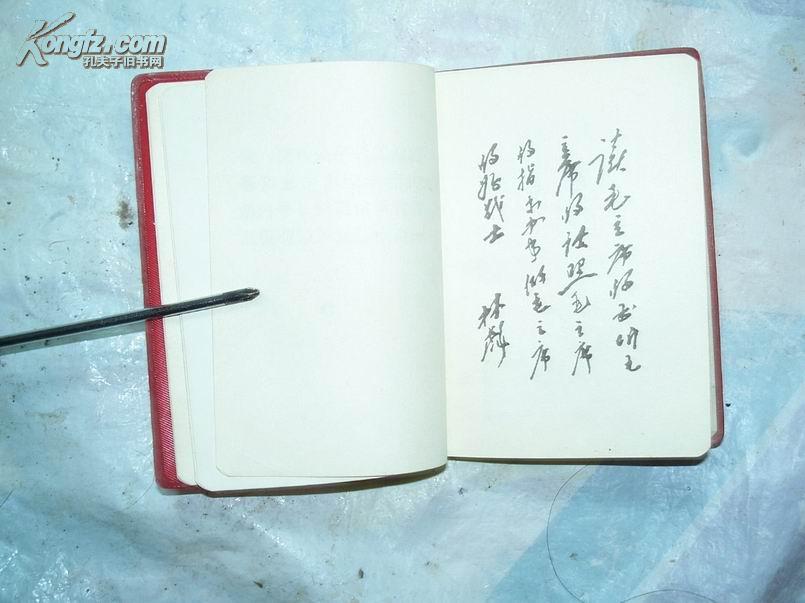 Kongfz.com
孔夫子旧书网
读毛主席的书听毛
主席的话照毛主席
的指示办事做毛主席
的好战士
林彪